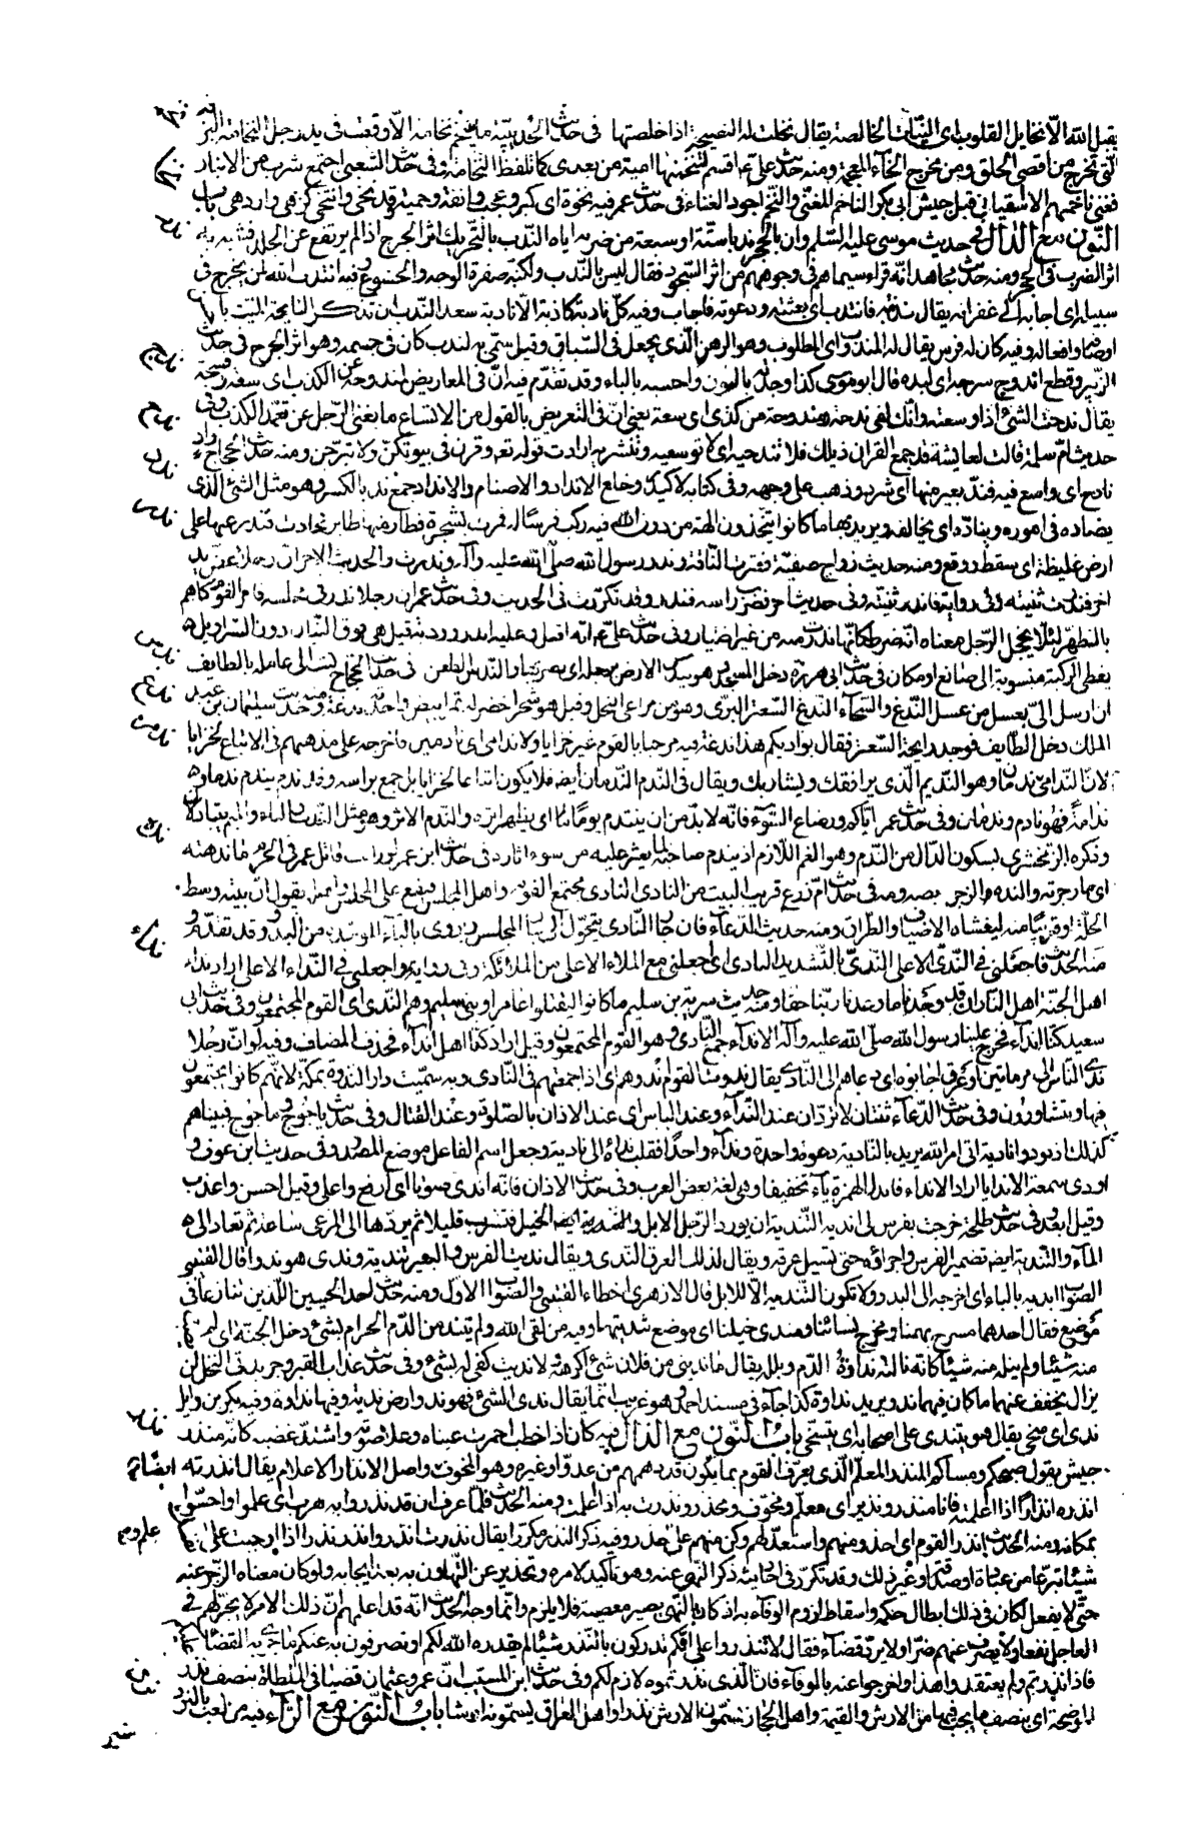 يقبل الله الا نخايل القلوب اى النيات الخالصة يقال نخلت له النصيحة اذا خلصتها فى حديث الحديبية ما يتنخم نخامة الا وقعت فى يد رجل النخامة البزقة
التى تخرج من اقصى الحلق ومن مخرج الخاء المعجمة ومنه حديث على اقسم لتنخمنها امية من بعدى كما تلفظ النخامة وفى حديث الشعبى اجتمع شرب من الانبار
فغنى ناخمهم الا سقيانى قبل جيش ابى بكر الناخم المغنى والنخم اجود الغناء فى حديث عمر فيه نخوة اى كبر وعجب وانفة وحمية وقد نخى وانتخى كزهى وازدهى باب
النون مع الدال فى حديث موسى عليه السلم وان بالحجر ندبا ستة او سبعة من ضربه اياه الندب بالتحريك اثر الجرح اذا لم يرتفع عن الجلد فشبه به
اثر الضرب فى الحجر ومنه حديث مجاهد انه قراء سيماهم فى وجوههم من اثر السجود فقال ليس بالندب ولكنه صفرة الوجه والخشوع وفيه انتدب الله لمن يخرج فى
سبيله اى اجابه الى غفرانه يقال ندبته فانتدب اى بعثته ودعوته فاجاب وفيه كل نادبة كاذبة الا نادبة سعد الندب ان تذكر النايحة الميت با
اوصافه وافعاله وفيه كان له فرس يقال له المندوب اى المطلوب وهو الرهن الذى يجعل فى السباق وقيل سمى به لندب كان فى جسمه وهو اثر الجرح فى حديث
الزبير وقطع اندوج سرجه اى لبده قال ابو موسى كذا وجدته بالنون واحسبه بالباء وقد تقدم فيه ان فى المعاريض لمندوحة عن الكذب اى سعة وفسحة
يقال ندحت الشئ اذا وسعته وانك لفى ندحة ومندوحة من كذى اى سعة يعنى ان فى التعريض بالقول من الاتساع ما يغنى الرجل عن تعمد الكذب وفى
حديث ام سلمة قالت لعايشة قد جمع القران ذيلك فلا تندحيه اى لا توسعيه وتنشريه ارادت قوله تعم وقرن فى بيوتكن ولا تبرجن ومنه حديث الحجاج واد
نادح اى واسع فيه فند بعير منها اى شرد وذهب على وجهه وفى كتابه لاكيدر وخلع الانداد والاصنام والانداد جمع ند بالكسر وهو مثل الشئ الذى
يضاده فى اموره ويناده اى يخالفه ويريد بها ما كانوا يتخذون الهة من دون الله فيه ركب فرسا له فمرت بشجرة فطار منها طاير فحادت فندر عنها على
ارض غليظة اى سقط ووقع ومنه حديث زواج صفية فعثرت الناقة وندر رسول الله صلى الله عليه وآله وندرت والحديث الاخر ان رجلا عض يد
اخر فندرت ثنيته وفى رواية فاندر ثنيته وفى حديث اخر فضرب راسه فندر وقد تكررت فى الحديث وفى حديث عمر ان رجلا ندر فى مجلسه فامر القوم كلهم
بالتطهر لئلا يخجل الرجل معناه انه ضرط كانها ندرت منه من غير اختيار وفى حديث على انه اقبل وعليه اندروردية قيل هى فوق التبان ودون السراويل
يغطى الركبة منسوبة الى صانع او مكان فى حديث ابى هريرة دخل المسجد وهو يندس الارض برجله اى يضرب بها والندس الطعن فى حديث الحجاج كتب الى عامله بالطايف
ان ارسل الى بعسل من عسل الندغ والسحاء الندغ السعتر البرى وهو من مراعى النحل وقيل هو شجر اخضر له ثمر ابيض واحدته ندغة ومنه حديث سليمان بن عبد
الملك دخل الطايف فوجد رايحة السعتر فقال بواديكم هذا ندغة فيه مرحبا بالقوم غير خزايا ولا ندامى اى نادمين فاخرجه على مذهبهم فى الاتباع لخزايا
لان الندامى جمع ندمان وهو النديم الذى يرافقك ويشاربك ويقال فى الندم الندمان ايضا فلا يكون اتباعا لخزايا بل جمع براسه وقد ندم يندم ندما و
ندامة فهو نادم وندمان وفى حديث عمر اياكم ورضاع السوء فانه لا بد من ان يندم يوما ما اى يظهر اثره والندم الاثر وهو مثل الندب الباء والميم يتبادلان
وذكره الزمخشرى بسكون الدال من الندم وهو الغم اللازم اذ يندم صاحبه لما يعثر عليه من سوء اثاره فى حديث ابن عمر لو رايت قاتل عمر فى الحرم ما ندهته
اى ما زجرته والنده الزجر بصه ومه فى حديث ام زرع قريب البيت من النادى النادى مجتمع القوم واهل المجلس فيقع على المجلس واهله يقول ان بيته وسط
الحلة او قريبا منه ليغشاه الاضياف والطراق ومنه حديث الدعاء فان جار النادى يتحول اى جار المجلس ويروى بالباء الموحدة من البدو وقد تقدم و
منه الحديث فاجعلنى فى الندى الاعلى الندى بالتشديد النادى اى اجعلنى مع الملاء الاعلى من الملائكة وفى رواية واجعلنى فى النداء الاعلى اراد نداء
اهل الجنة اهل النار ان قد وجدنا ما وعدنا ربنا حقا ومنه حديث سرية بن سليم ما كانوا ليقتلوا عامرا وبنى سليم وهم الندى اى القوم المجتمعون وفى حديث ابى
سعيد كنا انداء فخرج علينا رسول الله صلى الله عليه وآله الانداء جمع النادى وهو القوم المجتمعون وقيل اراد كنا اهل انداء فحذف المضاف وفيه لو ان رجلا
ندى الناس الى مرماتين او عرق اجابوه اى دعاهم الى النادى يقال ندوت القوم اندوهم اى اذا جمعتهم فى النادى وبه سميت دار الندوة بمكة لانهم كانوا يجتمعون
فيها ويتشاورون وفى حديث الدعاء ثنتان لا تردان عند النداء وعند الباس اى عند الاذان بالصلوة وعند القتال وفى حديث ياجوج وماجوج فبيناهم
كذلك اذ نودوا نادية اتى امر الله يريد بالنادية دعوة واحدة ونداء واحدا فقلب نداءة الى نادية وجعل اسم الفاعل موضع المصدر وفى حديث ابن عوف و
اودى سمعه الا ندايا اراد الا نداء فابدل الهمزة ياء تخفيفا وهى لغة بعض العرب وفى حديث الاذان فانه اندى صوتا اى ارفع واعلى وقيل احسن واعذب
وقيل ابعد وفى حديث طلحة خرجت بفرس لى انديه التندية ان يورد الرجل الابل والخيل فتشرب قليلا ثم يردها الى المرعى ساعة ثم تعاد الى
الماء والتندية ايضا تضمير الفرس واجراؤه حتى يسيل عرقه ويقال لذلك العرق الندى ويقال نديت الفرس والبعير تندية وندى هو ندوا قال القتيبى
الصواب ابديه بالباء اى اخرجه الى البدو ولا تكون التندية الا للابل قال الازهرى اخطاء القتيبى والصواب الاول ومنه حديث احد الحيين اللذين تنازعا فى
موضع فقال احدهما مسرح بهمنا ومخرج نسائنا ومندى خيلنا اى موضع تنديتها وفيه من لقى الله ولم يتند من الدم الحرام بشئ دخل الجنة اى لم يصب
منه شيئا ولم ينله منه شئ كانه نالته نداوة الدم وبلله يقال ما ندينى من فلان شئ اكرهه ولا نديت كفى له بشئ وفى حديث عذاب القبر وجريدتى النخل لن
يزال يخفف عنهما ما كان فيهما ندو يريد نداوة كذا جاء فى مسند احمد وهو غريب انما يقال ندى الشئ فهو ند وارض ندية وفيها نداوة وفيه بكر بن وايل
ندى اى سخى يقال هو يتندى على اصحابه اى يتسخى باب النون مع الذال فيه كان اذا خطب احمرت عيناه وعلا صوته واشتد غضبه كانه منذر
جيش يقول صبحكم ومساكم المنذر المعلم الذى يعرف القوم بما يكون قد دهمهم من عدو او غيره وهو المخوف واصل الانذار الاعلام يقال انذرته
انذره انذارا اذا اعلمته فانا منذر ونذير اى معلم ومخوف ومحذر ونذرت به اذا علمت ومنه الحديث فلما عرف ان قد نذروا به هرب اى علموا واحسوا
بمكانه ومنه الحديث انذر القوم اى احذر منهم واستعد لهم وكن منهم على حذر وفيه ذكر النذر مكررا يقال نذرت انذر وانذر نذرا اذا اوجبت على نفسك
شيئا تبرعا من عبادة او صدقة او غير ذلك وقد تكرر فى احاديثه ذكر النهى عنه وهو تاكيد لامره وتحذير عن التهاون به بعد ايجابه ولو كان معناه الزجر عنه
حتى لا يفعل لكان فى ذلك ابطال حكمه واسقاط لزوم الوفاء به اذ كان بالنهى يصير معصية فلا يلزم وانما وجه الحديث انه قد اعلمهم ان ذلك الامر لا يجر لهم فى
العاجل نفعا ولا يصرف عنهم ضرا ولا يرد قضاء فقال لا تنذروا على انكم تدركون بالنذر شيئا لم يقدره الله لكم او تصرفون به عنكم ما جرى به القضاء عليكم
فاذا نذرتم ولم تعتقدوا هذا فاخرجوا عنه بالوفاء فان الذى نذرتموه لازم لكم وفى حديث ابن المسيب ان عمر وعثمان قضيا فى الملطاة بنصف نذر
الموضحة اى بنصف ما يجب فيها من الارش والقيمة واهل الحجاز يسمون الارش نذرا واهل العراق يسمونه ارشا باب النون مع الراء فيه من لعب بالنرد
شير